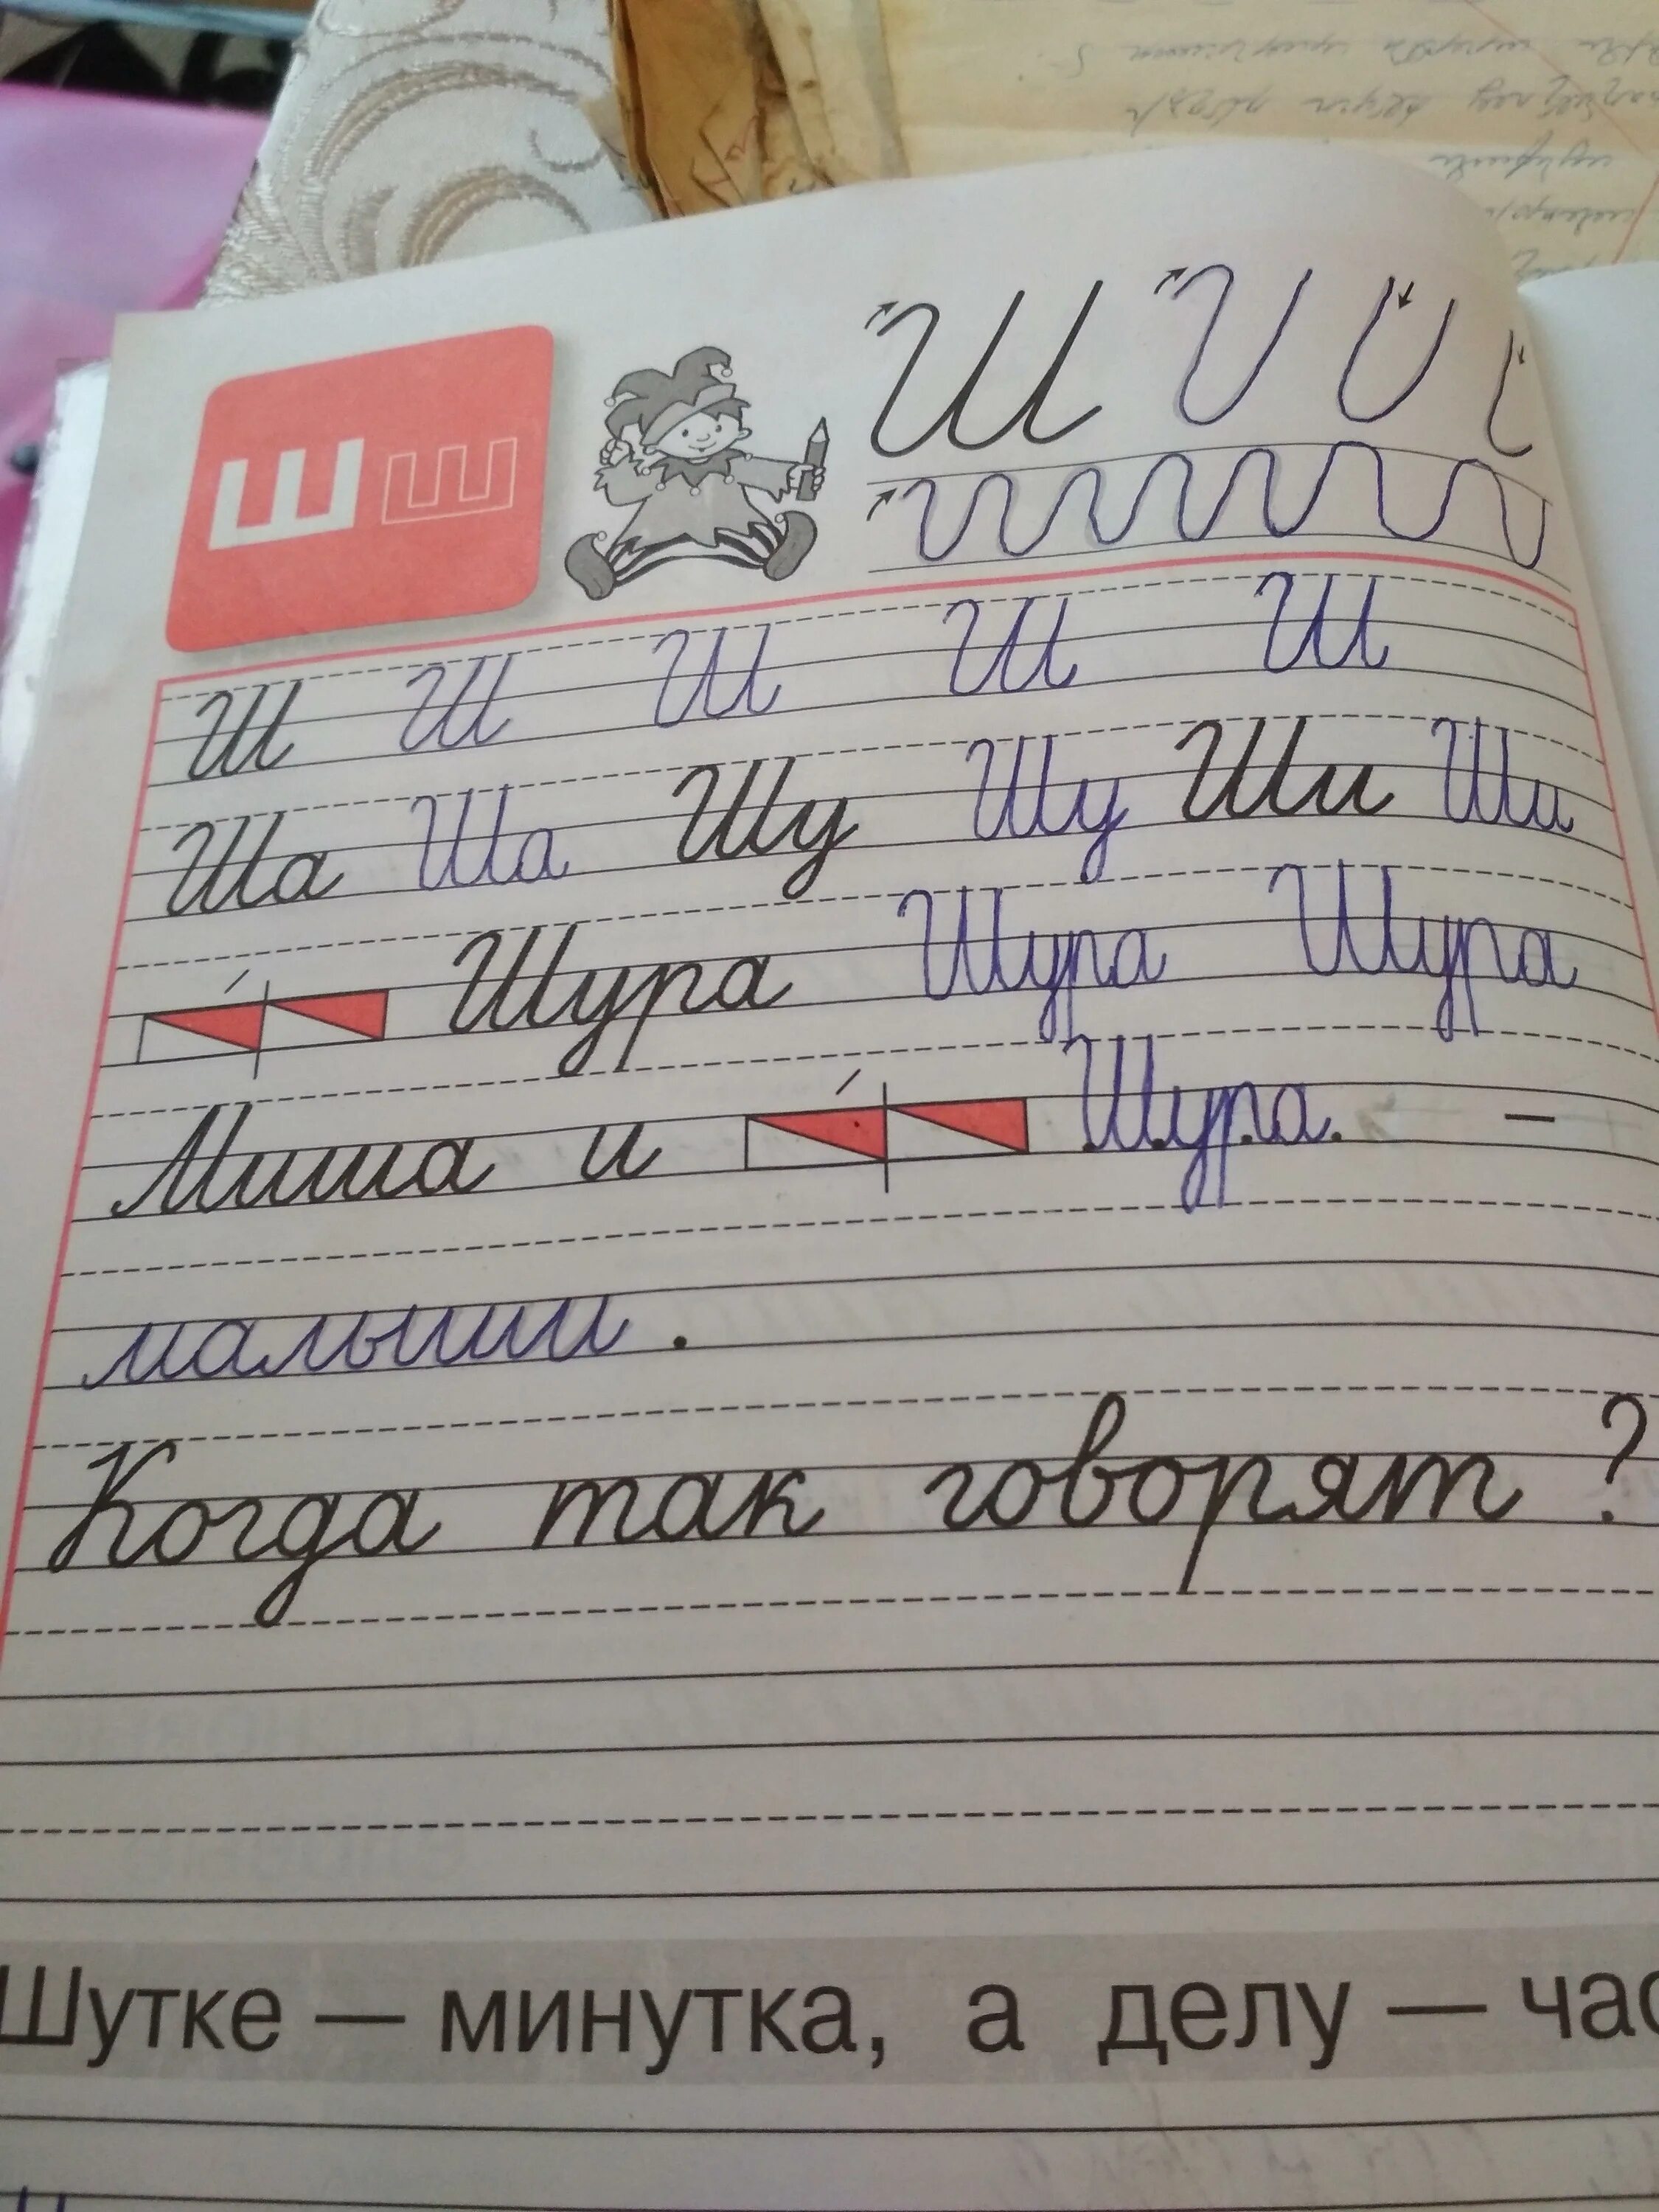 Ш ш
Ш
Ш Ш Ш Ш Ш
Ша Ша Шу Шу Ши Ши
Шура Шура Шура
Миша и Шура. –
малыши .
Когда так говорят ?
Шутке — минутка, а делу — час